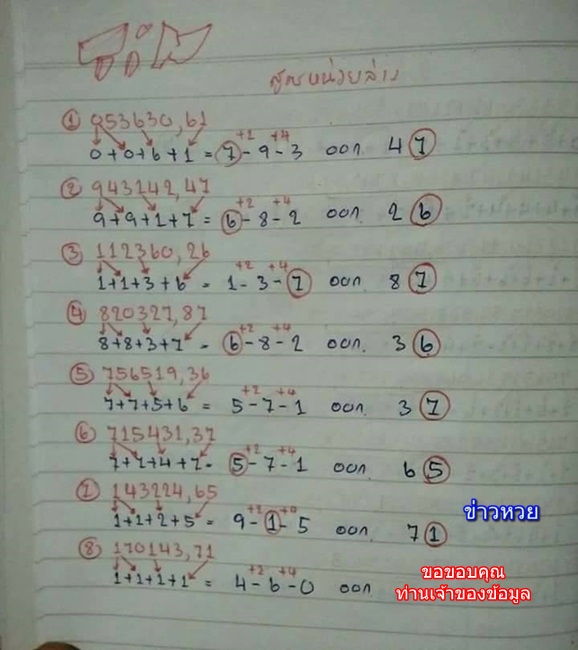 สูตรหน่วยล่าง
① 053630,61
+2 +4
0+0+6+1 = 7-9-3 ออก. 4 7
② 943142,47
+2 +4
9+9+1+7= 6-8-2 ออก 2 6
③ 112360,26
+2 +4
1+1+3+6= 1-3-7 ออก 8 7
④ 820327,87
+2 +4
8+8+3+7- 6-8-2 ออก. 3 6
⑤ 756519,36
+2 +4
7+7+5+6 = 5-7-1 ออก. 3 7
⑥ 715431,37
+2 +4
7+7+4+7- 5-7-1 ออก. 6 5
⑦ 143224,65
1+1+2+5= 9-1-5 ออก. 7 1
ข่าวหวย
⑧ 170143,71
+2 +4
1+1+1+1 = 4-6-0 ออก
ขอขอบคุณ
ท่านเจ้าของข้อมูล